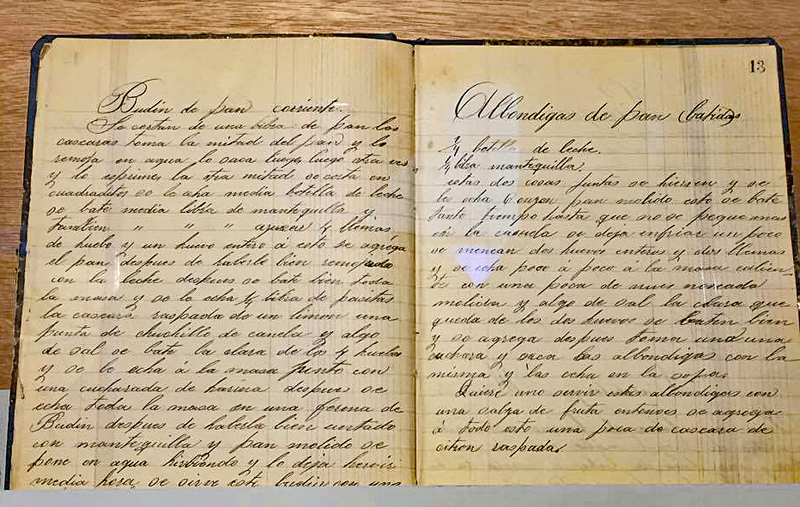 Budin de pan corriente.
Se cortan de una libra de pan las
cascaras toma la mitad del pan y lo
remoja en agua lo saca luego, luego
y lo esprime la otra mitad se corta en
cuadraditos se le echa media botella de leche
se bate media libra de mantequilla y
tambien " " " azucar 4 llemas
de huebo y un huevo entero á esto se agrega
el pan despues de haberlo bien remojado
con la leche despues se bate bien toda
la masa y se le echa ¼ libra de pasitas
la cascara raspada de un limon una
punta de chuchillo de canela y algo
de sal se bate la clara de los 4 huebos
y se le echa á la masa junto con
una cucharada de harina despues se
echa toda la masa en una forma de
Budin despues de haberla bien untado
con mantequilla y pan molido se
pone en agua hirbiendo y lo deja hervir
media hora se sirve este budin con una
13
Albondigas de pan (batidas)
¼ botella de leche.
¼ libra mantequilla.
estas dos cosas juntas se hierven y se
les echa 6 onzas pan molido esto se bate
tanto tiempo hasta que no se pegue mas
en la casuela se deja enfriar un poco
se menean dos huevos enteros y dos llemas
y se echa poco á poco a la masa calien
te con una poca de nues moscada
molida y algo de sal la clara que
queda de los dos huevos se baten bien
y se agrega despues toma una
cuchara y saca las albondigas con la
misma y las echa en la sopa.
Quiere uno servir estas albondigas con
una salza de fruta entonces se agrega
á todo esto una poca de cascara de
citron raspada.